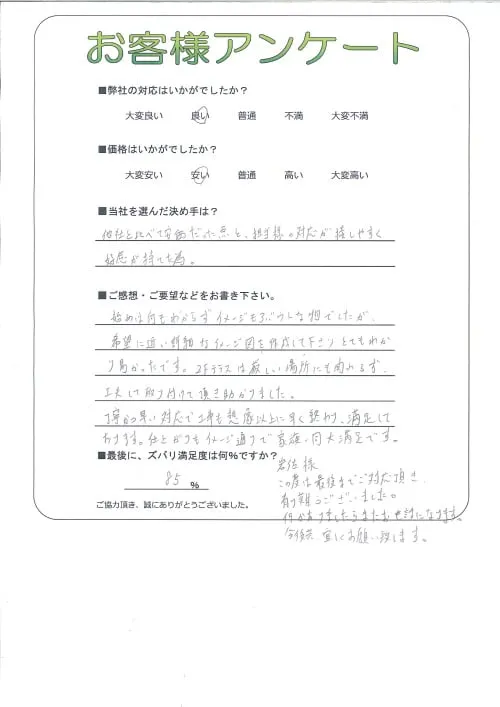 お客様アンケート
■弊社の対応はいかがでしたか?
大変良い 良い 普通 不満 大変不満
■価格はいかがでしたか?
大変安い 安い 普通 高い 大変高い
■当社を選んだ決め手は?
他社と比べて安価だった点と、担当様の対応が接しやすく
好感が持てた為。
■ご感想・ご要望などをお書き下さい。
始めは何もわからずイメージもぶつしな物でしたが、
希望に近い詳細なイメージ図を作成して下さりとてもわか
り易かったです。2Fテラスは厳しい場所にも関わらず、
工夫して取り付けて頂き助かりました。
丁寧かつ早い対応で工事も想像以上に早く終わり、満足して
おります。仕上がりもイメージ通りで家族一同大満足です。
■最後に、ズバリ満足度は何%ですか?
85 %
岩佐様
この度は最後までご対応頂き、
有り難うございました。
何かありましたらまたお世話になります。
今後共、宜しくお願い致します。
ご協力頂き、誠にありがとうございました。